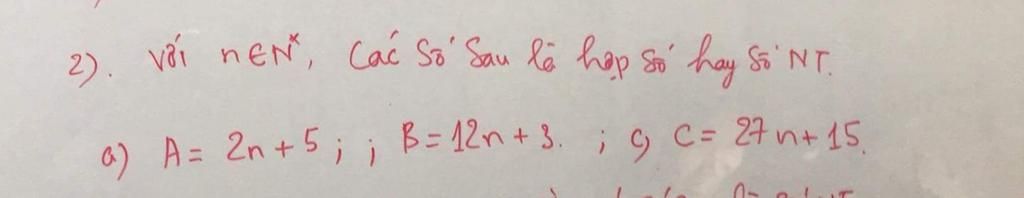 2). Với n∈N*, Các Số Sau là hợp số hay Số NT.
a) A = 2n+5 ; ; B = 12n + 3. ; c) C = 27n+15.